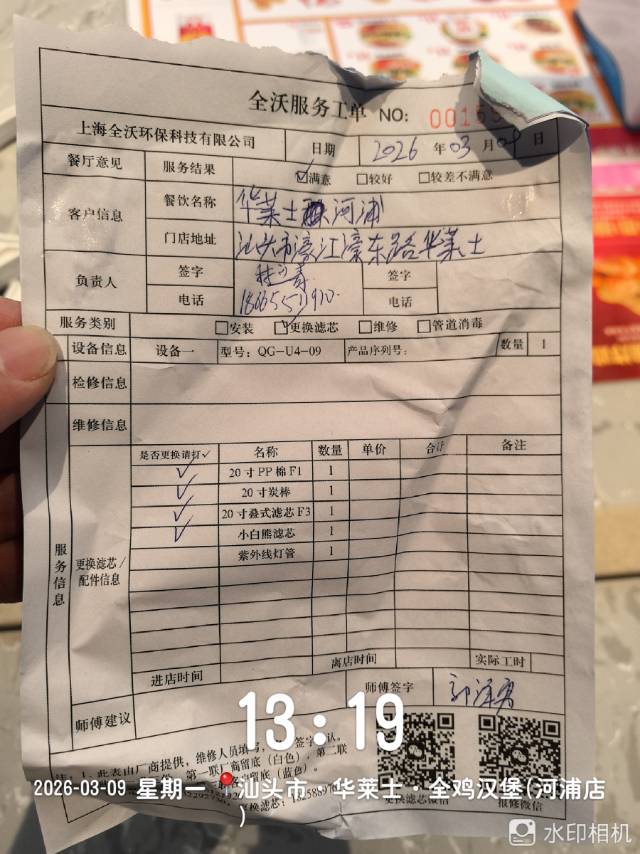 全沃服务工单 NO: 00155
上海全沃环保科技有限公司 日期 2026 年 03 月 09 日
餐厅意见 服务结果 ☑满意 □较好 □较差不满意
客户信息 餐饮名称 华莱士 河浦
门店地址 汕头市濠江濠东路华莱士
负责人 签字 签字
电话 电话
服务类别 □安装 ☑更换滤芯 □维修 □管道消毒
设备信息 设备一 型号: QG-U4-09 产品序列号: 数量 1
检修信息
维修信息
服务信息
更换滤芯/配件信息
是否更换请打✓ 名称 数量 单价 合计 备注
✓ 20寸PP棉F1 1
✓ 20寸炭棒 1
✓ 20寸叠式滤芯F3 1
✓ 小白熊滤芯 1
紫外线灯管 1
进店时间 离店时间 实际工时
师傅建议 师傅签字
13:19
注: 1、此表由厂商提供，维修人员填写，签字确认。
第一联厂商留底（白色）。第二联
留底（蓝色）。
更换滤芯微信 报修微信
2026-03-09 星期一 汕头市 · 华莱士·全鸡汉堡(河浦店
)
水印相机